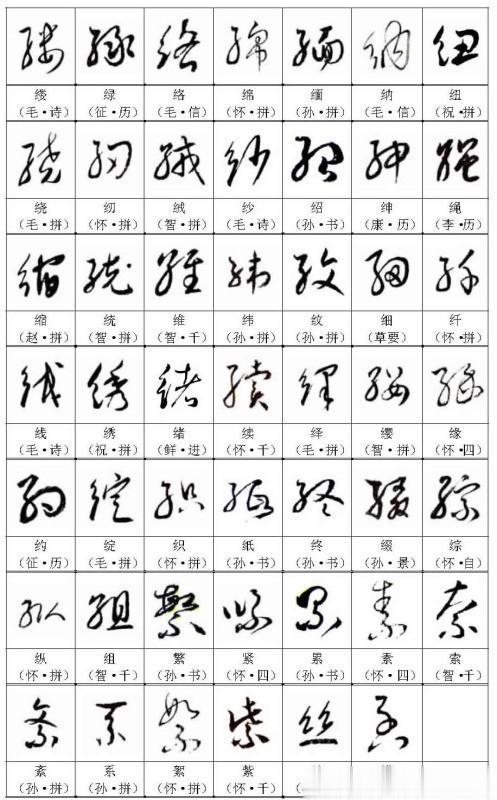 缕 绿 络 绵 缅 纳 纽
（毛·诗） （征·历） （毛·信） （怀·拼） （孙·拼） （毛·信） （祝·拼）
绕 纫 绒 纱 绍 绅 绳
（毛·拼） （怀·拼） （智·拼） （毛·诗） （孙·书） （康·历） （李·历）
缩 统 维 纬 纹 细 纤
（赵·拼） （智·拼） （智·千） （孙·拼） （孙·拼） （草要） （怀·拼）
线 绣 绪 续 绎 缨 缘
（毛·诗） （祝·拼） （鲜·进） （怀·千） （毛·拼） （智·拼） （怀·四）
约 绽 织 纸 终 缀 综
（征·历） （毛·拼） （怀·拼） （孙·书） （孙·书） （孙·景） （怀·自）
纵 组 繁 紧 累 素 索
（怀·拼） （智·千） （孙·书） （怀·四） （孙·书） （怀·四） （智·千）
紊 系 絮 紫
（孙·拼） （孙·拼） （怀·拼） （怀·千）